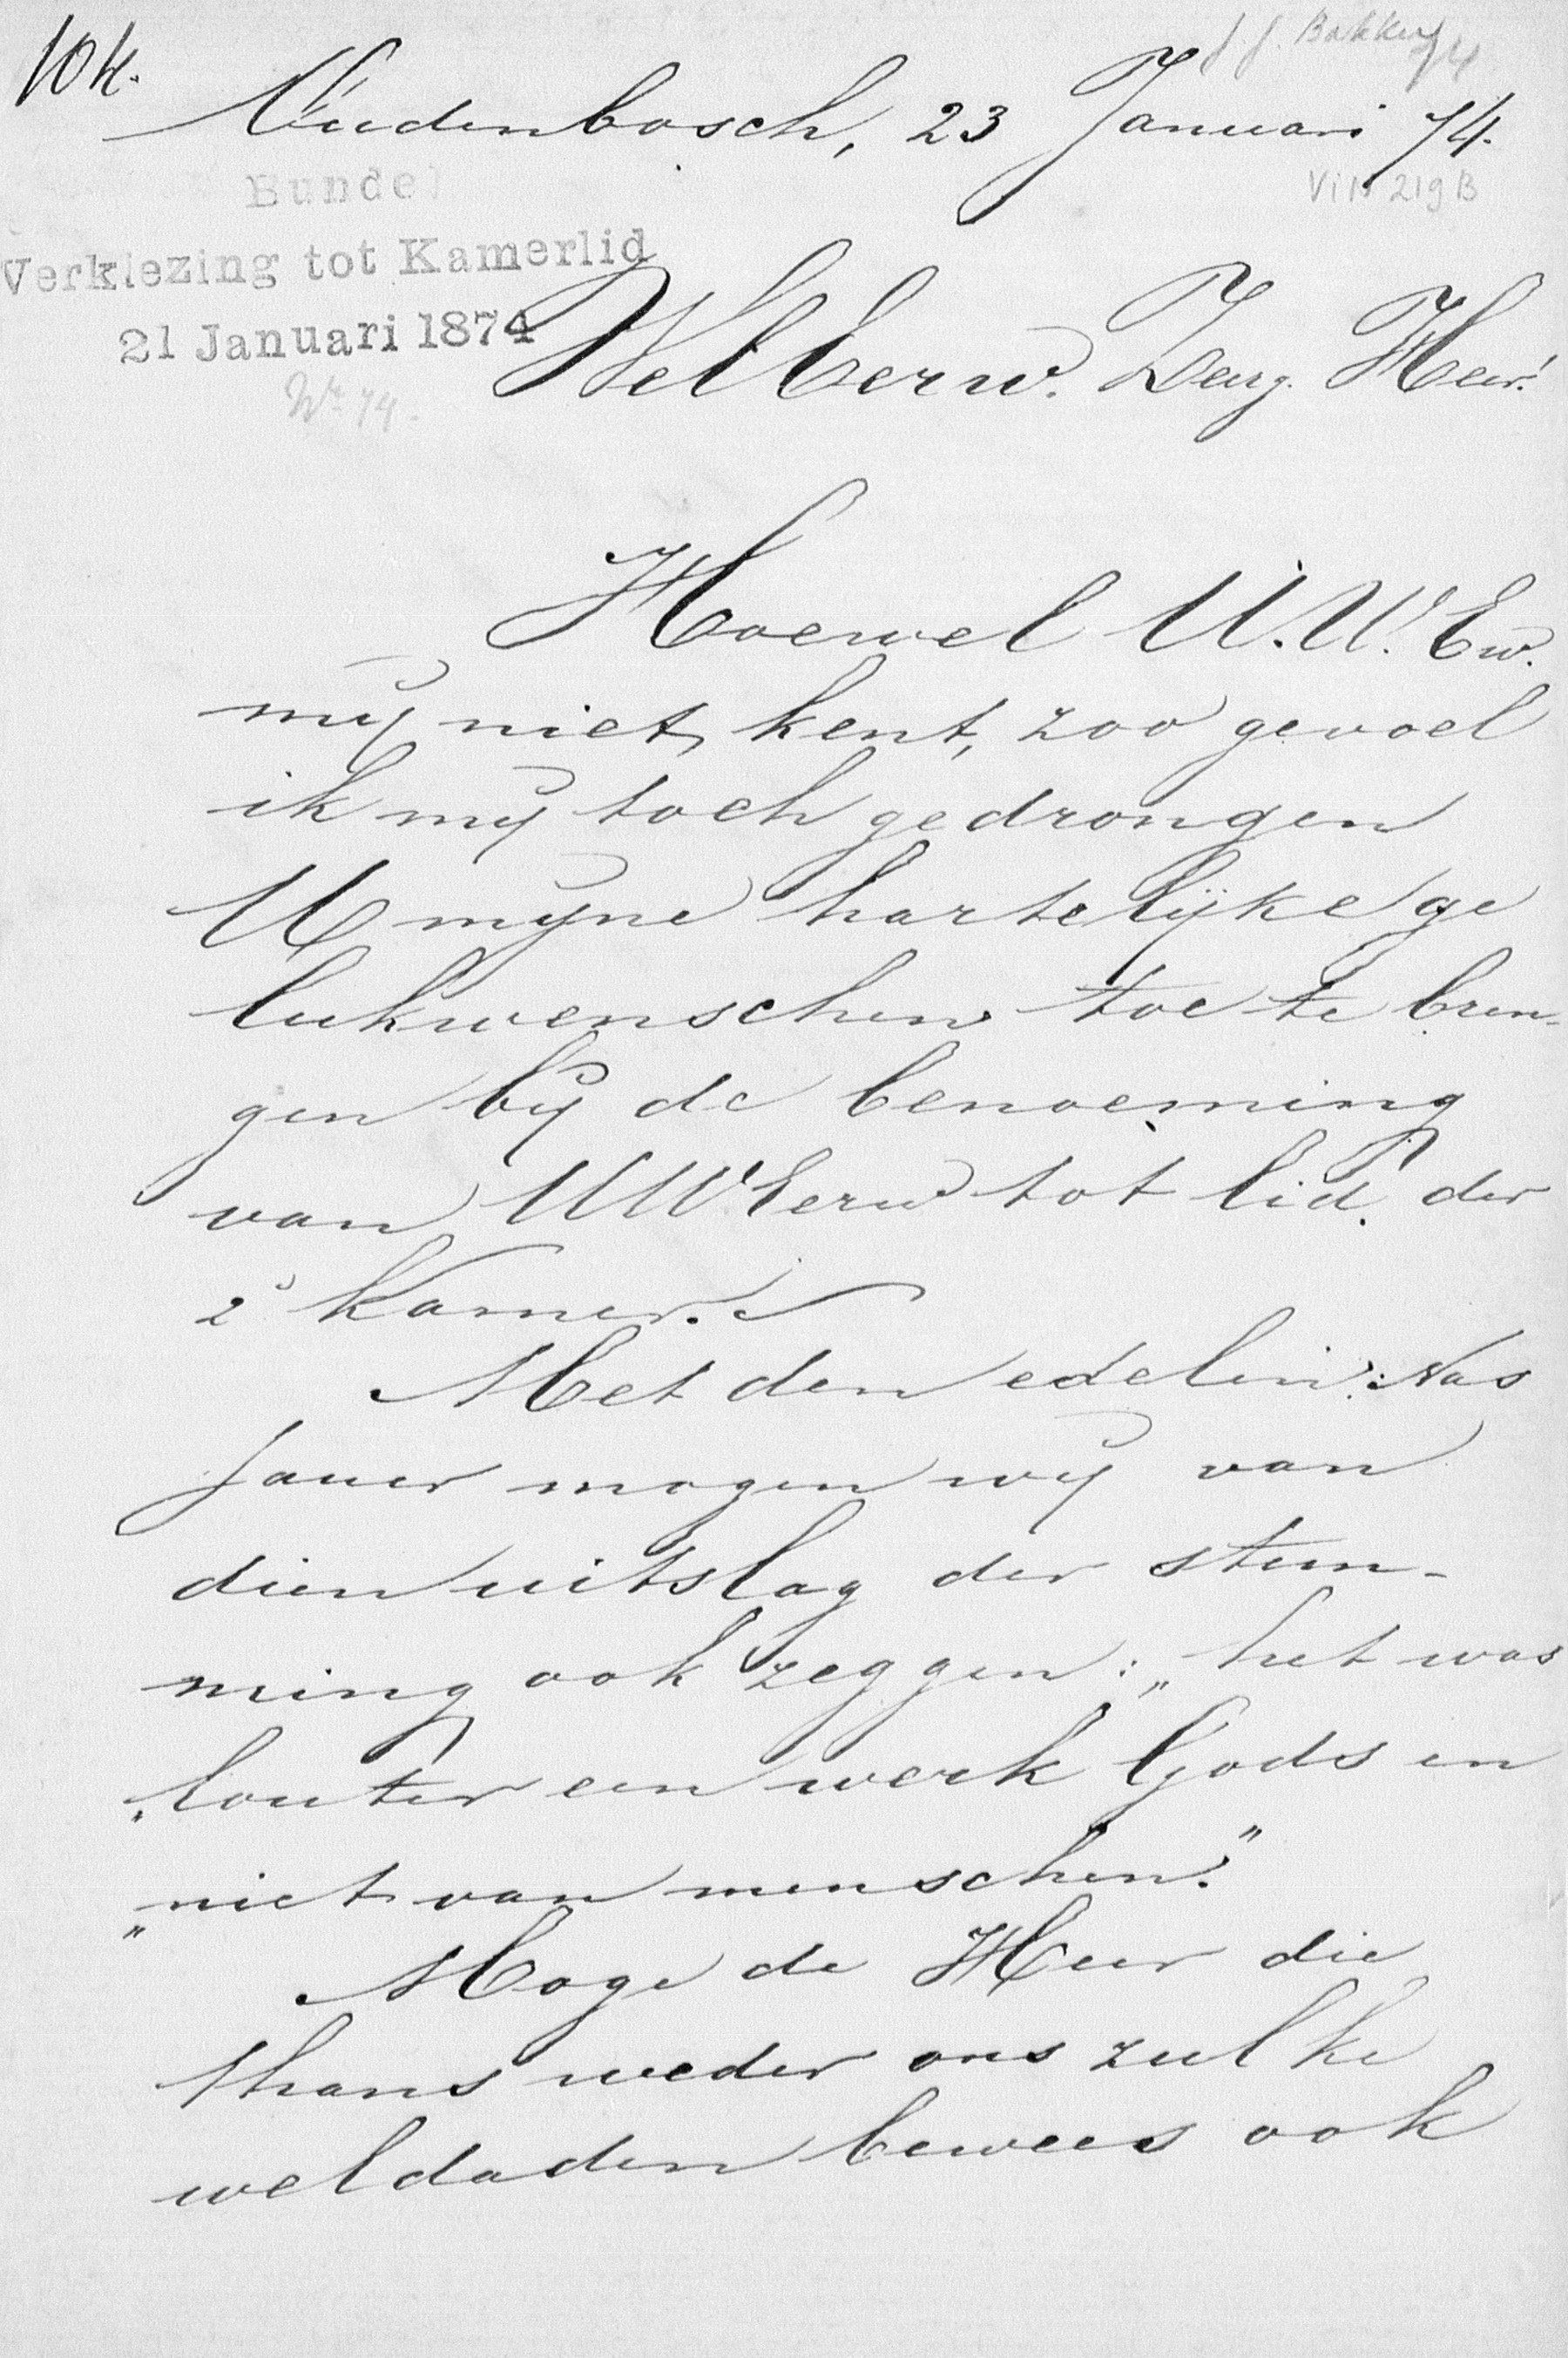 104.
J. J. Bakker
Oudenbosch, 23 Januari 74.
Bundel
VIII 219 B
Verkiezing tot Kamerlid
21 Januari 1874
No 74.
WelEerw. Zeerg. Heer!
Hoewel U.W.Ew.
mij niet kent, zoo gevoel
ik mij toch gedrongen
U mijne hartelijke ge
lukwenschen toe te bren-
gen bij de benoeming
van UWEerw tot lid der
2e Kamer.
Met den edelen: Nas
sauer mogen wij van
dien uitslag der stem-
ming ook zeggen: „het was
„louter een werk Gods en
„niet van menschen."
Moge de Heer die
thans weder ons zulke
weldaden bewees ook